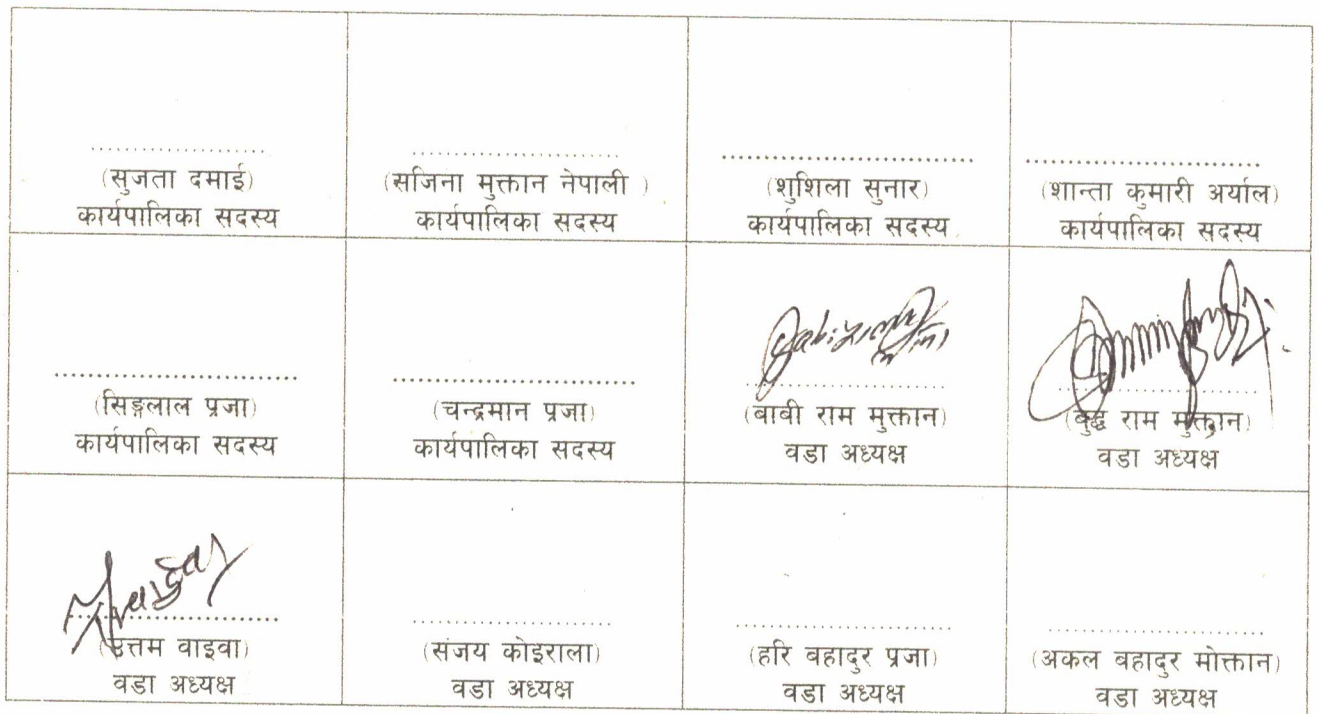 ....................
(सुजता दमाई)
कार्यपालिका सदस्य
....................
(सजिना मुक्तान नेपाली )
कार्यपालिका सदस्य
............................
(शुशिला सुनार)
कार्यपालिका सदस्य
..........................
(शान्ता कुमारी अर्याल)
कार्यपालिका सदस्य
............................
(सिङ्गलाल प्रजा)
कार्यपालिका सदस्य
............................
(चन्द्रमान प्रजा)
कार्यपालिका सदस्य
....................
(बाबी राम मुक्तान)
वडा अध्यक्ष
....................
(बुद्ध राम मुक्तान)
वडा अध्यक्ष
........................
(उत्तम वाइवा)
वडा अध्यक्ष
....................
(संजय कोइराला)
वडा अध्यक्ष
........................
(हरि बहादुर प्रजा)
वडा अध्यक्ष
........................
(अकल बहादुर मोक्तान)
वडा अध्यक्ष